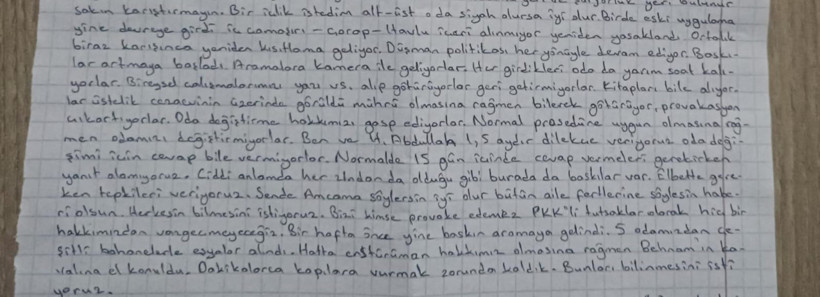 sakın karıştırmayın. Bir içlik istedim alt-üst o da siyah olursa iyi olur. Birde eski uygulama
yine devreye girdi iç çamaşırı - çorap - Havlu içeri alınmıyor yeniden yasaklandı. Ortalık
biraz karışınca yeniden kısıtlama geliyor. Düşman politikası her yönüyle devam ediyor. Baskı-
lar artmaya başladı. Aramalara kamera ile geliyorlar. Her girdikleri oda da yarım saat kalı-
yorlar. Bireysel çalışmalarımızı yazı vs. alıp götürüyorlar geri getirmiyorlar. Kitapları bile alıyor-
lar üstelik cezaevinin üzerinde görüldü mührü olmasına rağmen bilerek götürüyor, provakasyon
çıkartıyorlar. Oda değiştirme hakkımızı gasp ediyorlar. Normal prosedüre uygun olmasına rağ-
men odamızı değiştirmiyorlar. Ben ve H. Abdullah 1,5 aydır dilekçe veriyoruz oda deği-
şimi için cevap bile vermiyorlar. Normalde 15 gün içinde cevap vermeleri gerekirken
yanıt alamıyoruz. Ciddi anlamda her zındanda olduğu gibi burada da baskılar var. Elbette gere-
ken tepkileri veriyoruz. Sende Amcama söylersin iyi olur bütün aile fertlerine söylesin habe-
ri olsun. Herkesin bilmesini istiyoruz. Bizi kimse provake edemez PKK'li tutsaklar olarak hiç bir
hakkımızdan vazgeçmeyeceğiz. Bir hafta önce yine baskın aramaya gelindi. 5 odamızdan çe-
şitli bahanelerle eşyalar alındı. Hatta enstürüman hakkımız olmasına rağmen Behnam'ın ka-
valına el konuldu. Dakikalarca kapılara vurmak zorunda kaldık. Bunları bilinmesini isti-
yoruz.